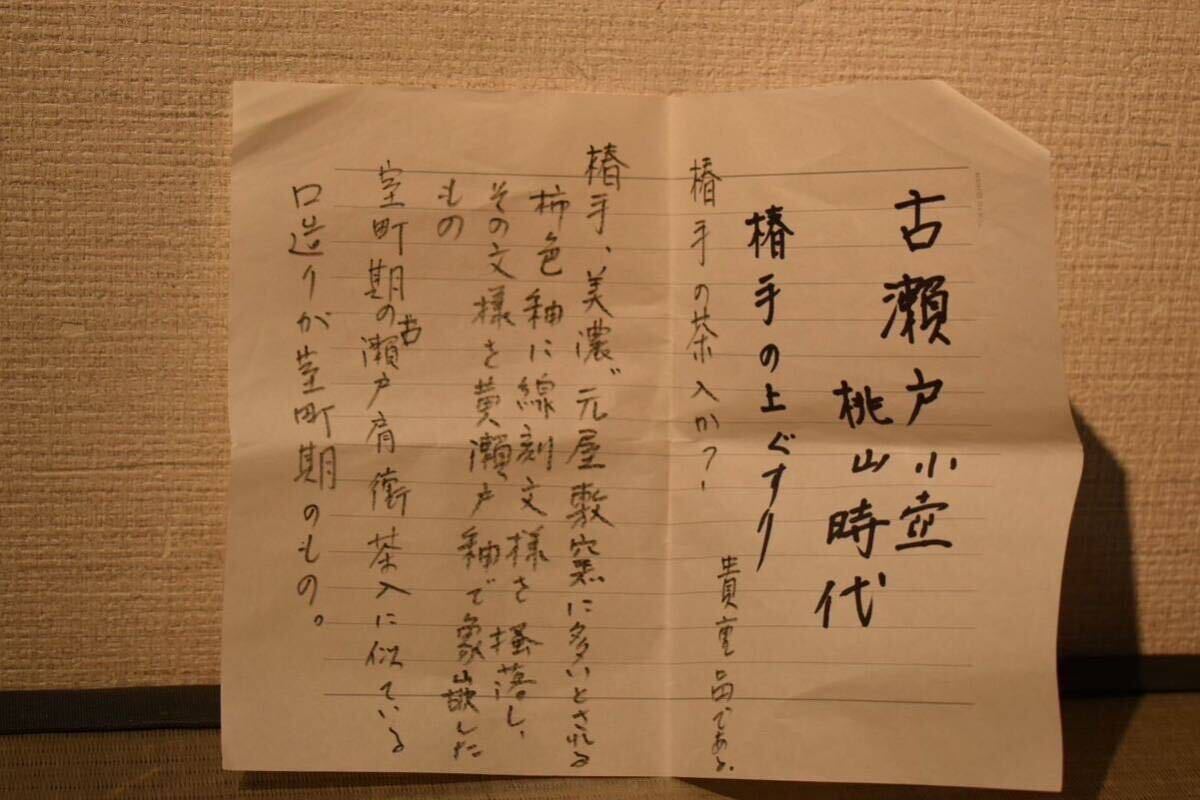 古瀬戸小壺
桃山時代
椿手の上ぐすり
貴重品である。
椿手の茶入か?
椿手、美濃、元屋敷窯に多いとされる
柿色釉に線刻文様を掻落し、
その文様を黄瀬戸釉で象嵌した
もの
室町期の古瀬戸肩衝茶入に似ている
口造りが室町期のもの。